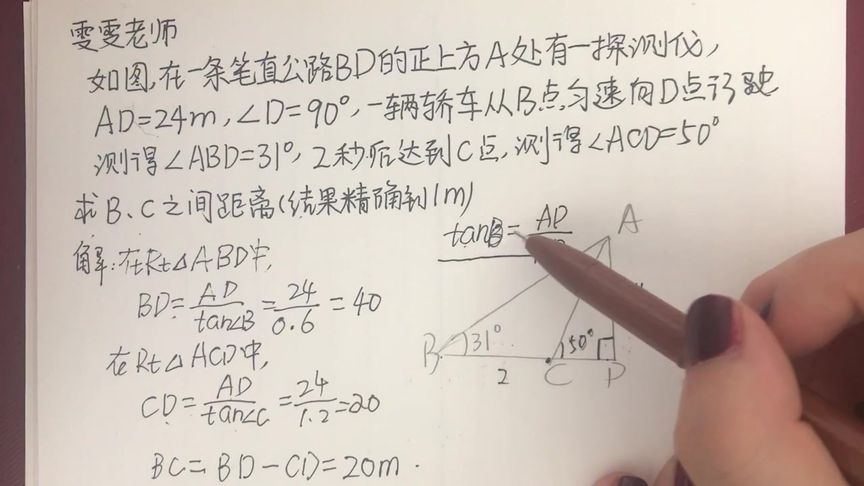 雯雯老师
如图,在一条笔直公路BD的正上方A处有一探测仪,
AD=24m,∠D=90°,一辆轿车从B点匀速向D点行驶
测得∠ABD=31°,2秒后达到C点,测得∠ACD=50°
求B、C之间距离(结果精确到1m)
tanB=AD
解:在Rt△ABD中,
BD=AD/tan∠B=24/0.6=40
在Rt△ACD中,
CD=AD/tan∠C=24/1.2=20
BC=BD-CD=20m.
A
B 31° 2 C 50° D